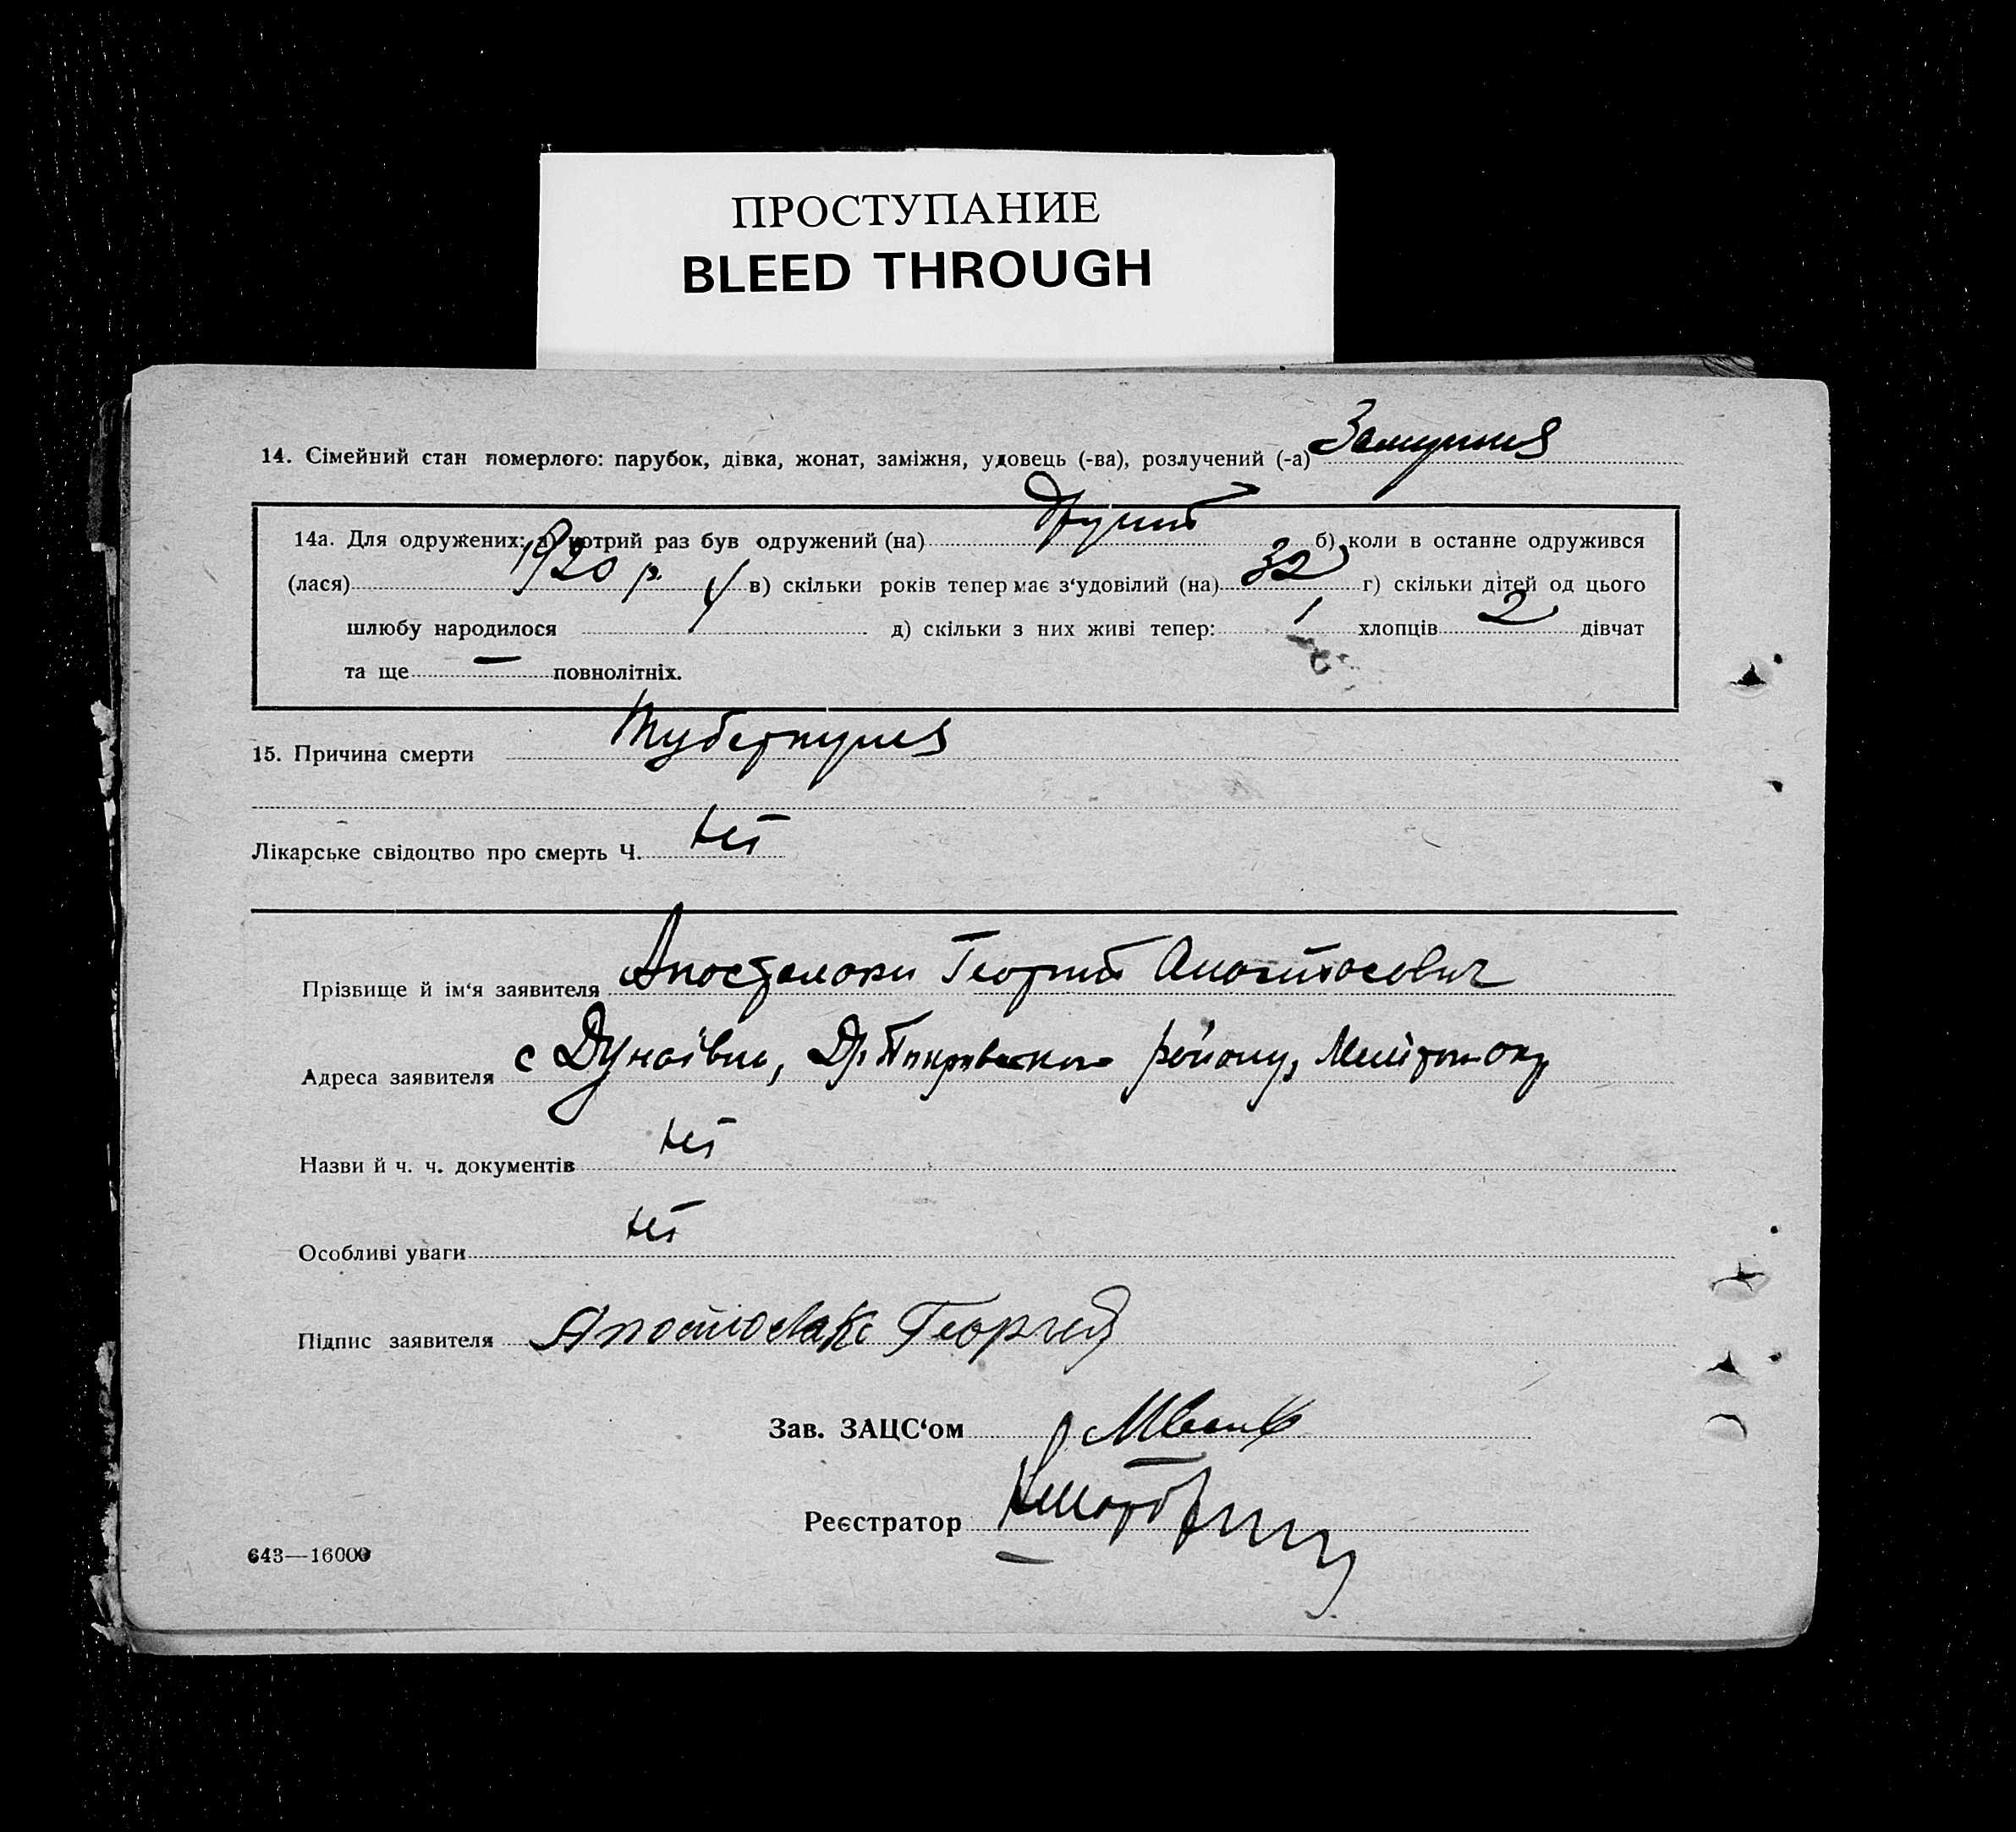 ПРОСТУПАНИЕ
BLEED THROUGH
14. Сімейний стан померлого: парубок, дівка, жонат, заміжня, удовець (-ва), розлучений (-а) Замужня
14а. Для одружених: а) котрий раз був одружений (на) другий б) коли в останнє одружився
(лася) 1920 р. в) скільки років тепер має з‘удовілий (на) 32 г) скільки дітей од цього
шлюбу народилося 4 д) скільки з них живі тепер: 1 хлопців 2 дівчат
та ще — повнолітніх.
15. Причина смерти Туберкульоз
Лікарське свідоцтво про смерть Ч. нет
Прізвище й ім‘я заявителя Апостолаки Георгий
Адреса заявителя с Дунаівки, району,
Назви й ч. ч. документів нет
Особливі уваги нет
Підпис заявителя Апостолаки Георгий
Зав. ЗАЦС‘ом
Реєстратор
643—16000